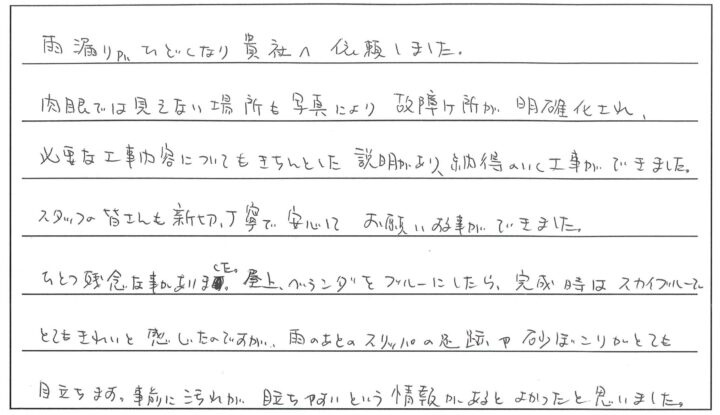 雨漏りがひどくなり貴社へ依頼しました。
肉眼では見えない場所も写真により故障ヶ所が明確化され、
必要な工事内容についてもきちんとした説明があり、納得のいく工事ができました。
スタッフの皆さんも新切、丁寧で安心して お願いする事ができました。
ひとつ残念な事がありました。屋上、ベランダをブルーにしたら、完成時はスカイブルーで
とてもきれいと感じたのですが、雨のあとのスリッパの足跡や砂ぼこりがとても
目立ちます。事前に汚れが目立ちやすいという情報があるとよかったと思いました。